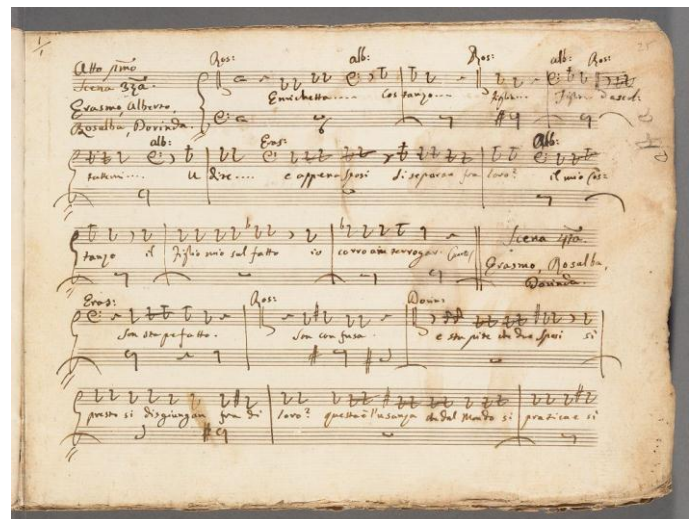 1/1
Ros: alb: Ros: alb: Ros:
Atto primo
Scena 3za.
Erasmo, Alberto,
Rosalba, Dorinda.
Enrichetta.... Costanzo.... figlia... figlio... d'ascol:
alb: Eros: Alb:
tatemi.... Udite.... e appena sposi si separan fra loro? il mio Cos:
tanzo il figlio mio sul fatto io corro ad interrogar.
Scena 4ta.
Erasmo, Rosalba,
Dorinda.
Eras: Ros: Dorin:
Son stupefatto. Son confusa. e stupite che due sposi si
presto si disgiungan fra di loro? questa è l'usanza che dal Mondo si pratica e si